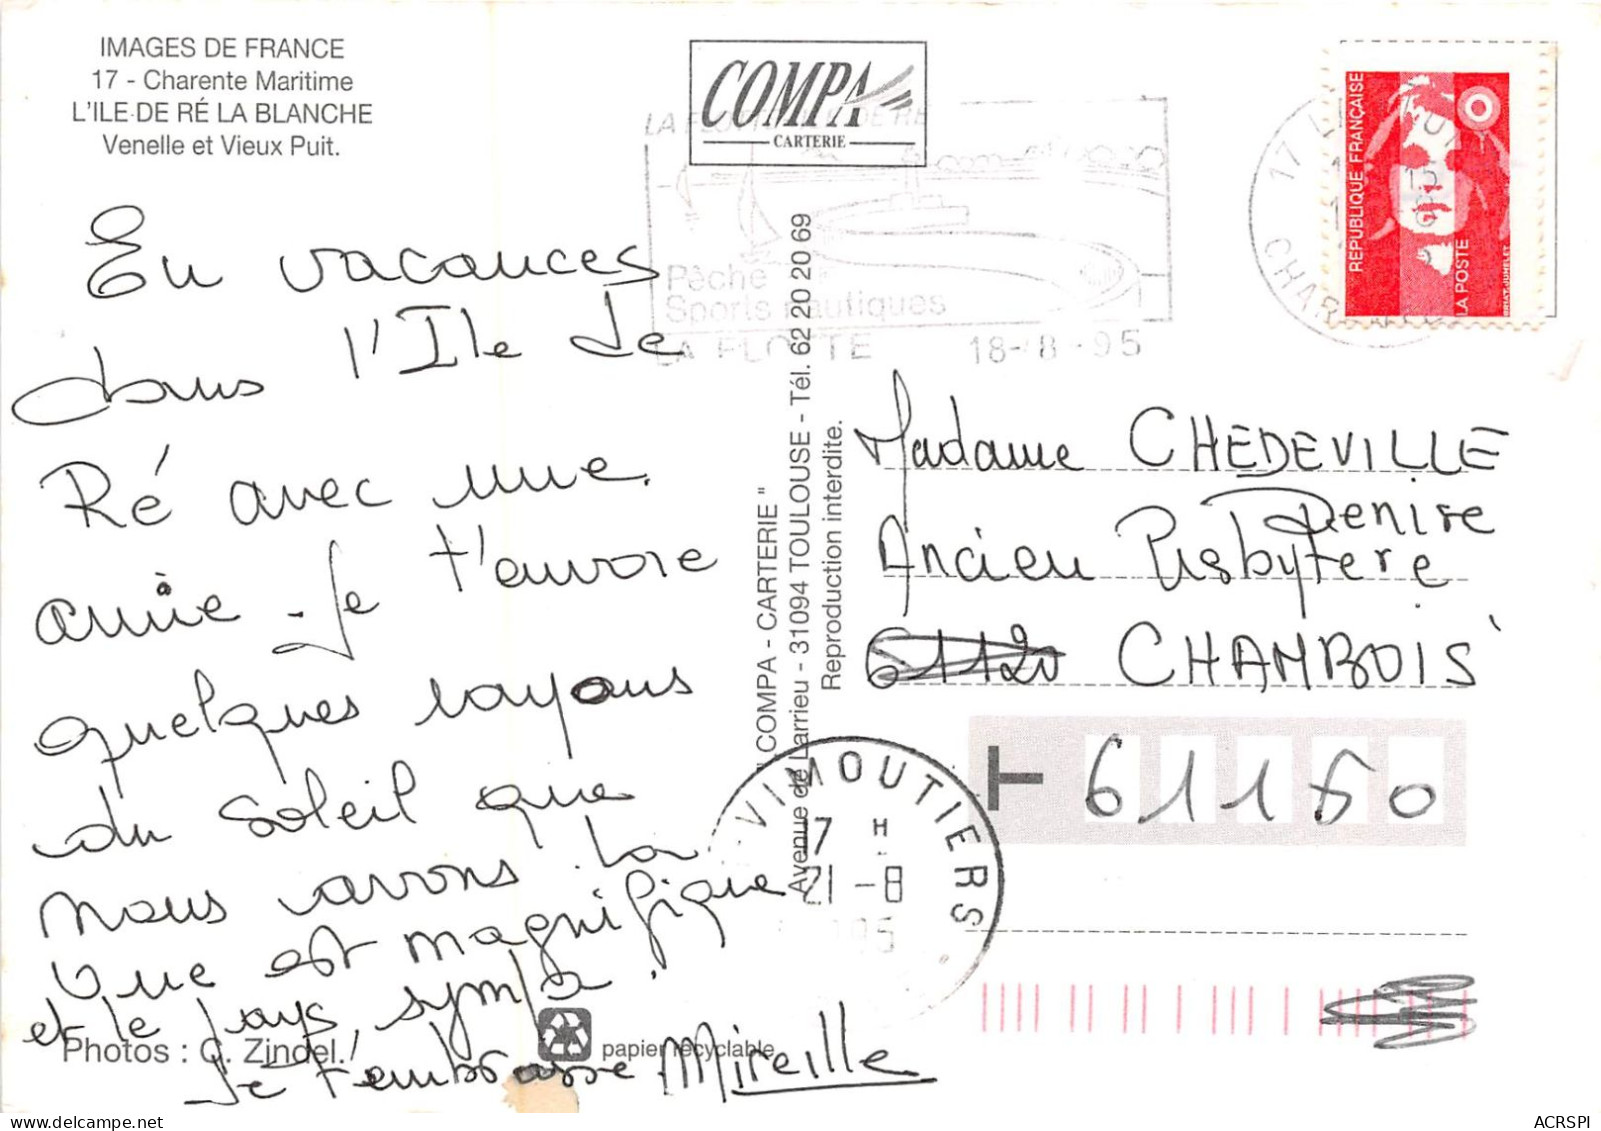 IMAGES DE FRANCE
17 - Charente Maritime
L'ILE DE RÉ LA BLANCHE
Venelle et Vieux Puit.
En vacances
dans l'Ile de
Ré avec une
amie. Je t'envoie
quelques rayons
du soleil que
nous avons la
vue est magnifique
et le pays sympa.
Je t'embrasse Mireille
Photos : C. Zindel.
papier recyclable
COMPA
CARTERIE
Pêche
Sports nautiques
LA FLOTTE 18-8-95
" COMPA - CARTERIE "
Avenue de Larrieu - 31094 TOULOUSE - Tél. 62 20 20 69
Reproduction interdite.
17 LA
CHAR
RÉPUBLIQUE FRANÇAISE
LA POSTE
BRIAT-JUMELET
Madame CHEDEVILLE
Denise
Ancien Presbytere
61120 CHAMBOIS
T 61160
VIMOUTIERS
17 H
21-8
ACRSPI